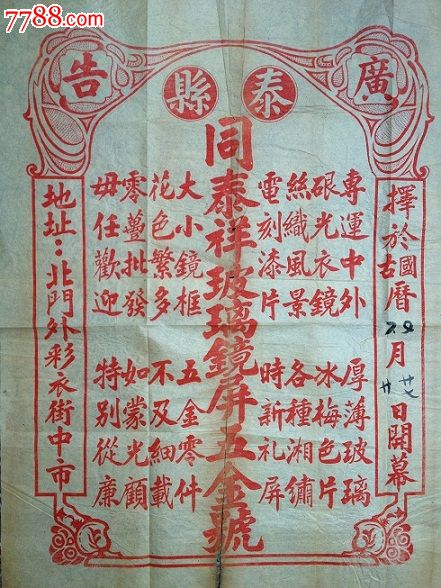 7788.com
中国收藏热线
廣告
泰縣
擇於國古曆月日開幕
專運中外 厚薄玻璃
硍光衣鏡 冰梅色片
絲織風景 各種湘繡
電刻漆片 時新礼屏
同泰祥玻璃鏡屏五金號
大小鏡框 五金零件
花色繁多 不及細載
零躉批發 如蒙光顧
毋任歡迎 特別從廉
地址：北門外彩衣街中市